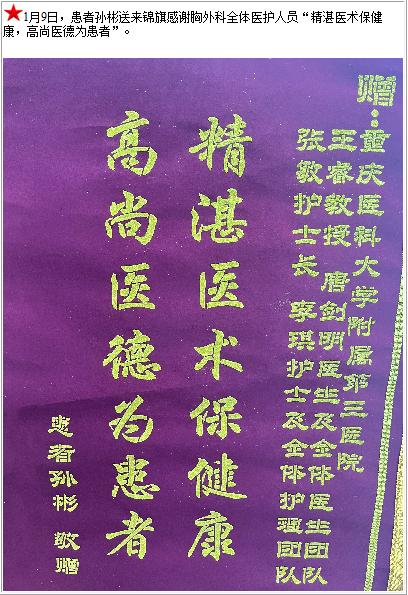 1月9日，患者孙彬送来锦旗感谢胸外科全体医护人员“精湛医术保健
康，高尚医德为患者”。
赠：
重庆医科大学附属第三医院
王睿教授 唐剑明医生及全体医生团队
张敏护士长 李琪护士及全体护理团队
精湛医术保健康
高尚医德为患者
患者孙彬 敬赠